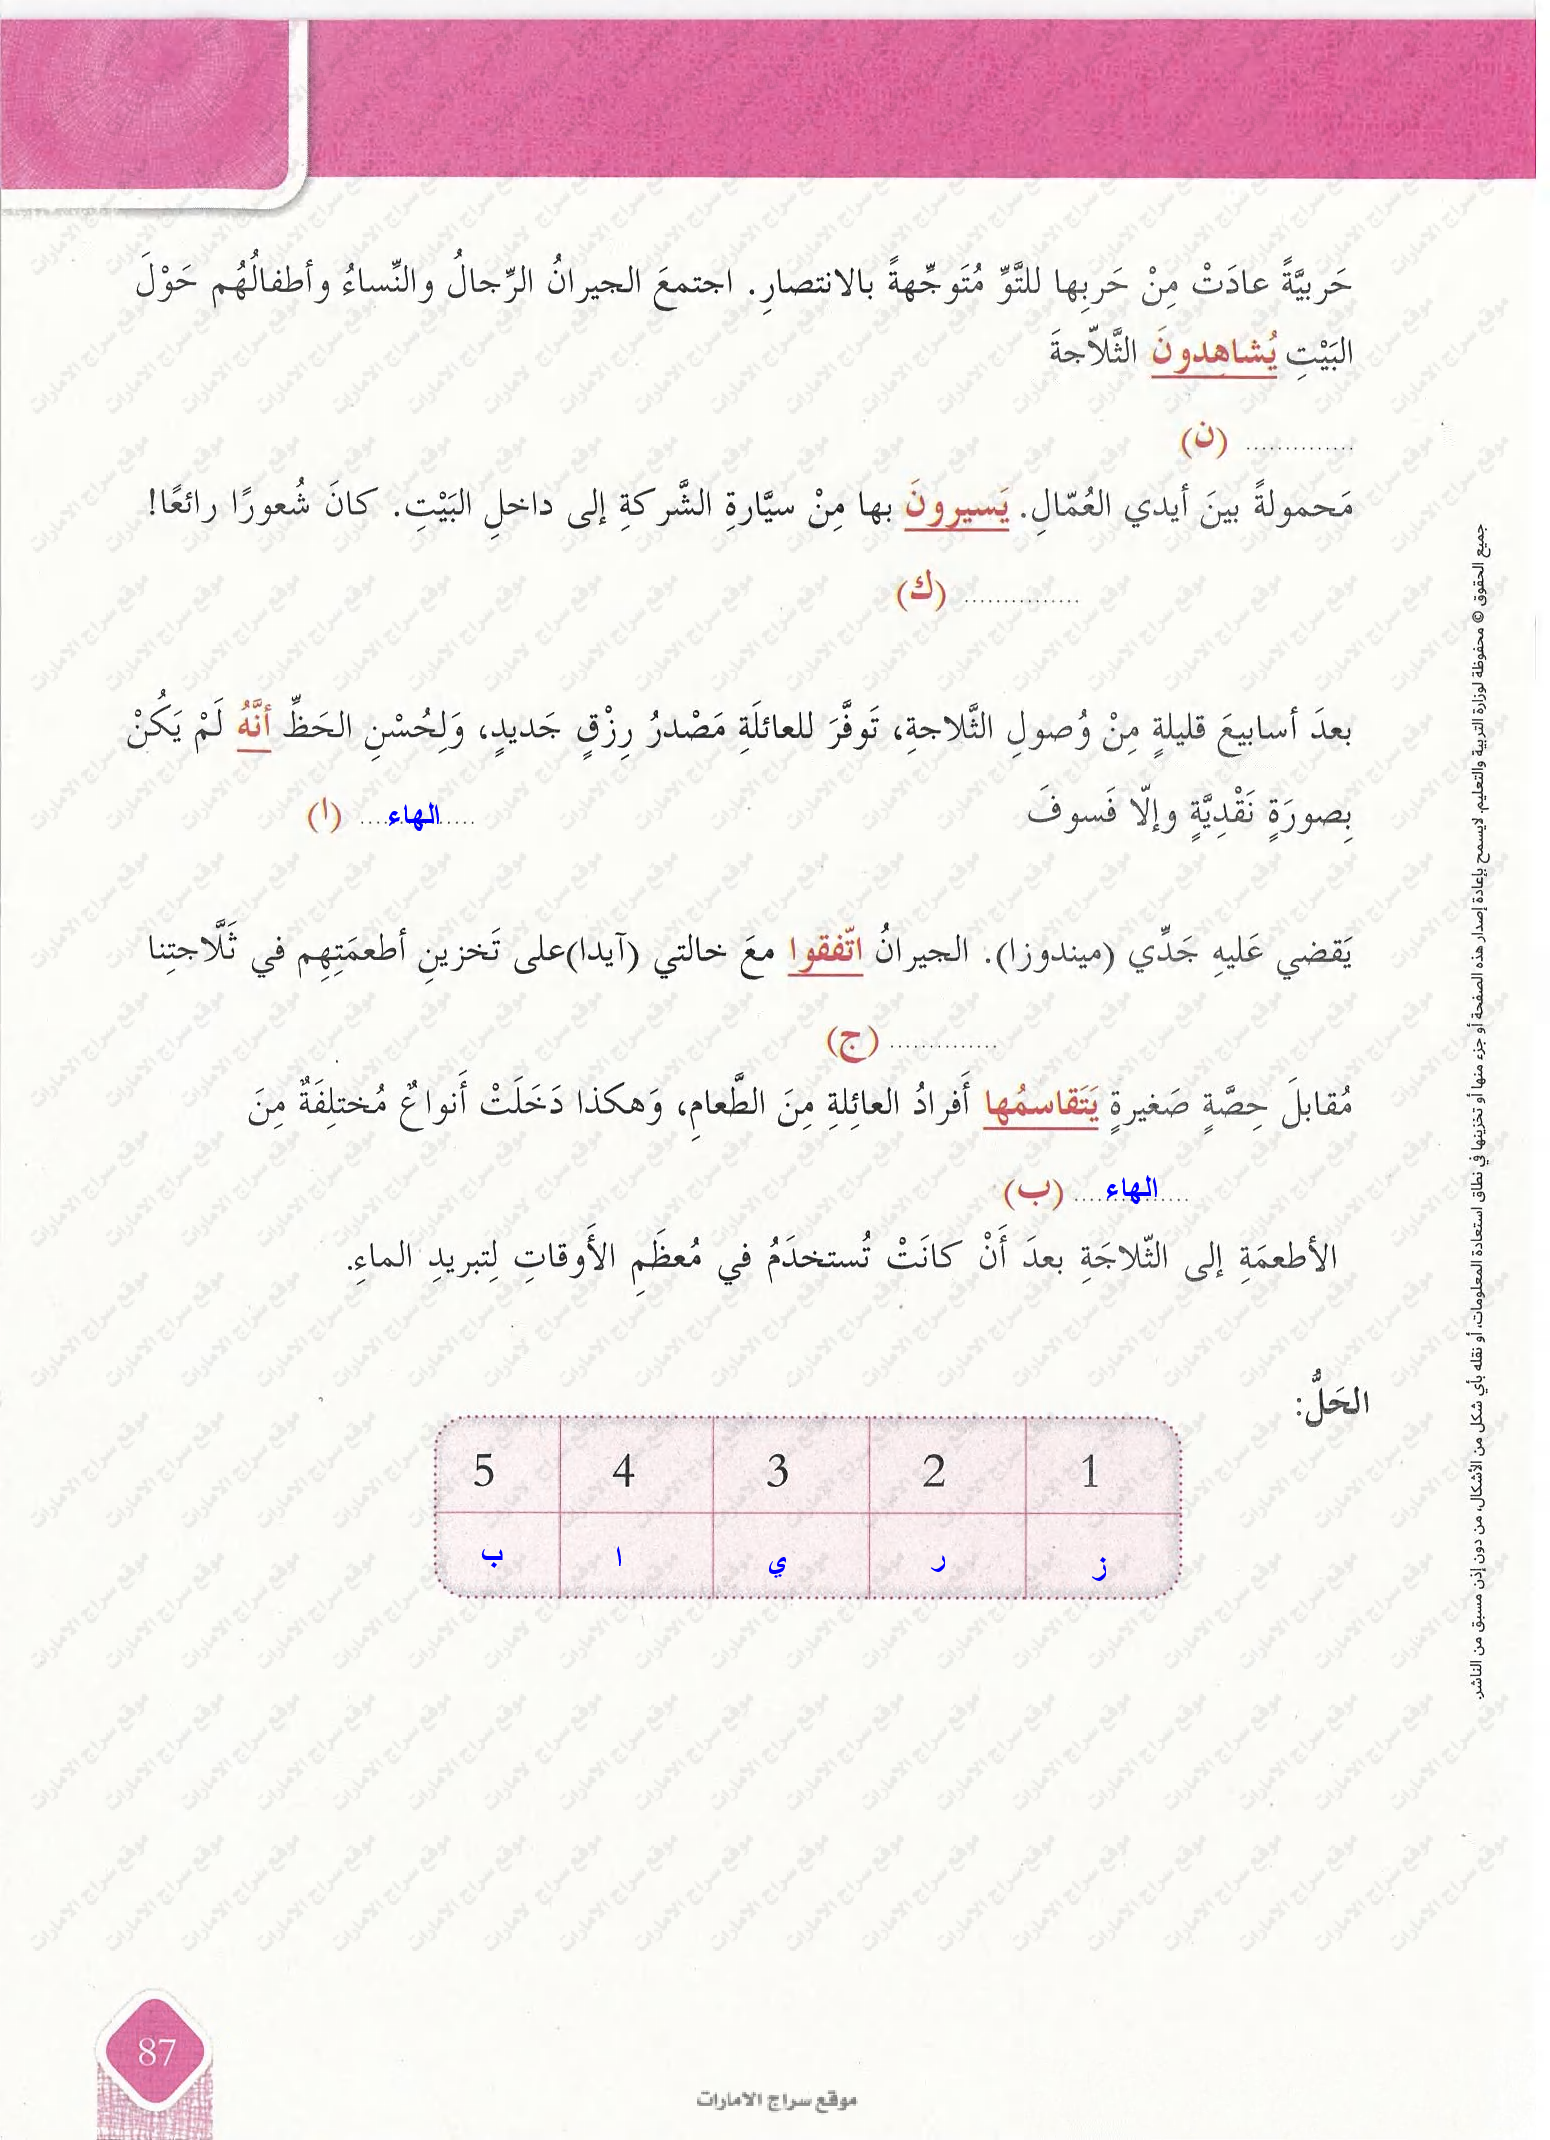 حَربيَّةً عادَتْ مِنْ حَربِها للتَّوِّ مُتَوجِّهةً بالانتصارِ. اجتمعَ الجيرانُ الرِّجالُ والنِّساءُ وأطفالُهُم حَوْلَ
البَيْتِ يُشاهِدونَ الثَّلاّجةَ
.............. (ن)
مَحمولةً بينَ أيدي العُمّالِ. يَسيرونَ بها مِنْ سيَّارةِ الشَّركةِ إلى داخلِ البَيْتِ. كانَ شُعورًا رائعًا!
............... (ك)
بعدَ أسابيعَ قليلةٍ مِنْ وُصولِ الثَّلاجةِ، تَوفَّرَ للعائلَةِ مَصْدرُ رِزْقٍ جَديدٍ، وَلِحُسْنِ الحَظِّ أنَّهُ لَمْ يَكُنْ
بِصورَةٍ نَقْدِيَّةٍ وإلّا فَسوفَ
الهاء (ا)
يَقضي عَليهِ جَدِّي (ميندوزا). الجيرانُ اتّفقوا معَ خالتي (آيدا)على تَخزينِ أطعمَتِهِم في ثَلَّاجتِنا
.............. (ج)
مُقابلَ حِصَّةٍ صَغيرةٍ يَتَقاسمُها أَفرادُ العائِلةِ مِنَ الطَّعامِ، وَهكذا دَخَلَتْ أَنواعٌ مُختلِفَةٌ مِنَ
الهاء (ب)
الأطعمَةِ إلى الثّلاجَةِ بعدَ أَنْ كانَتْ تُستخدَمُ في مُعظَمِ الأَوقاتِ لِتبريدِ الماءِ.
الحَلُّ:
1 2 3 4 5
ز ر ي ا ب
جميع الحقوق © محفوظة لوزارة التربية والتعليم. لايسمح بإعادة إصدار هذه الصفحة أو جزء منها أو تخزينها في نطاق استعادة المعلومات، أو نقله بأي شكل من الأشكال، من دون إذن مسبق من الناشر.
87
موقع سراج الامارات